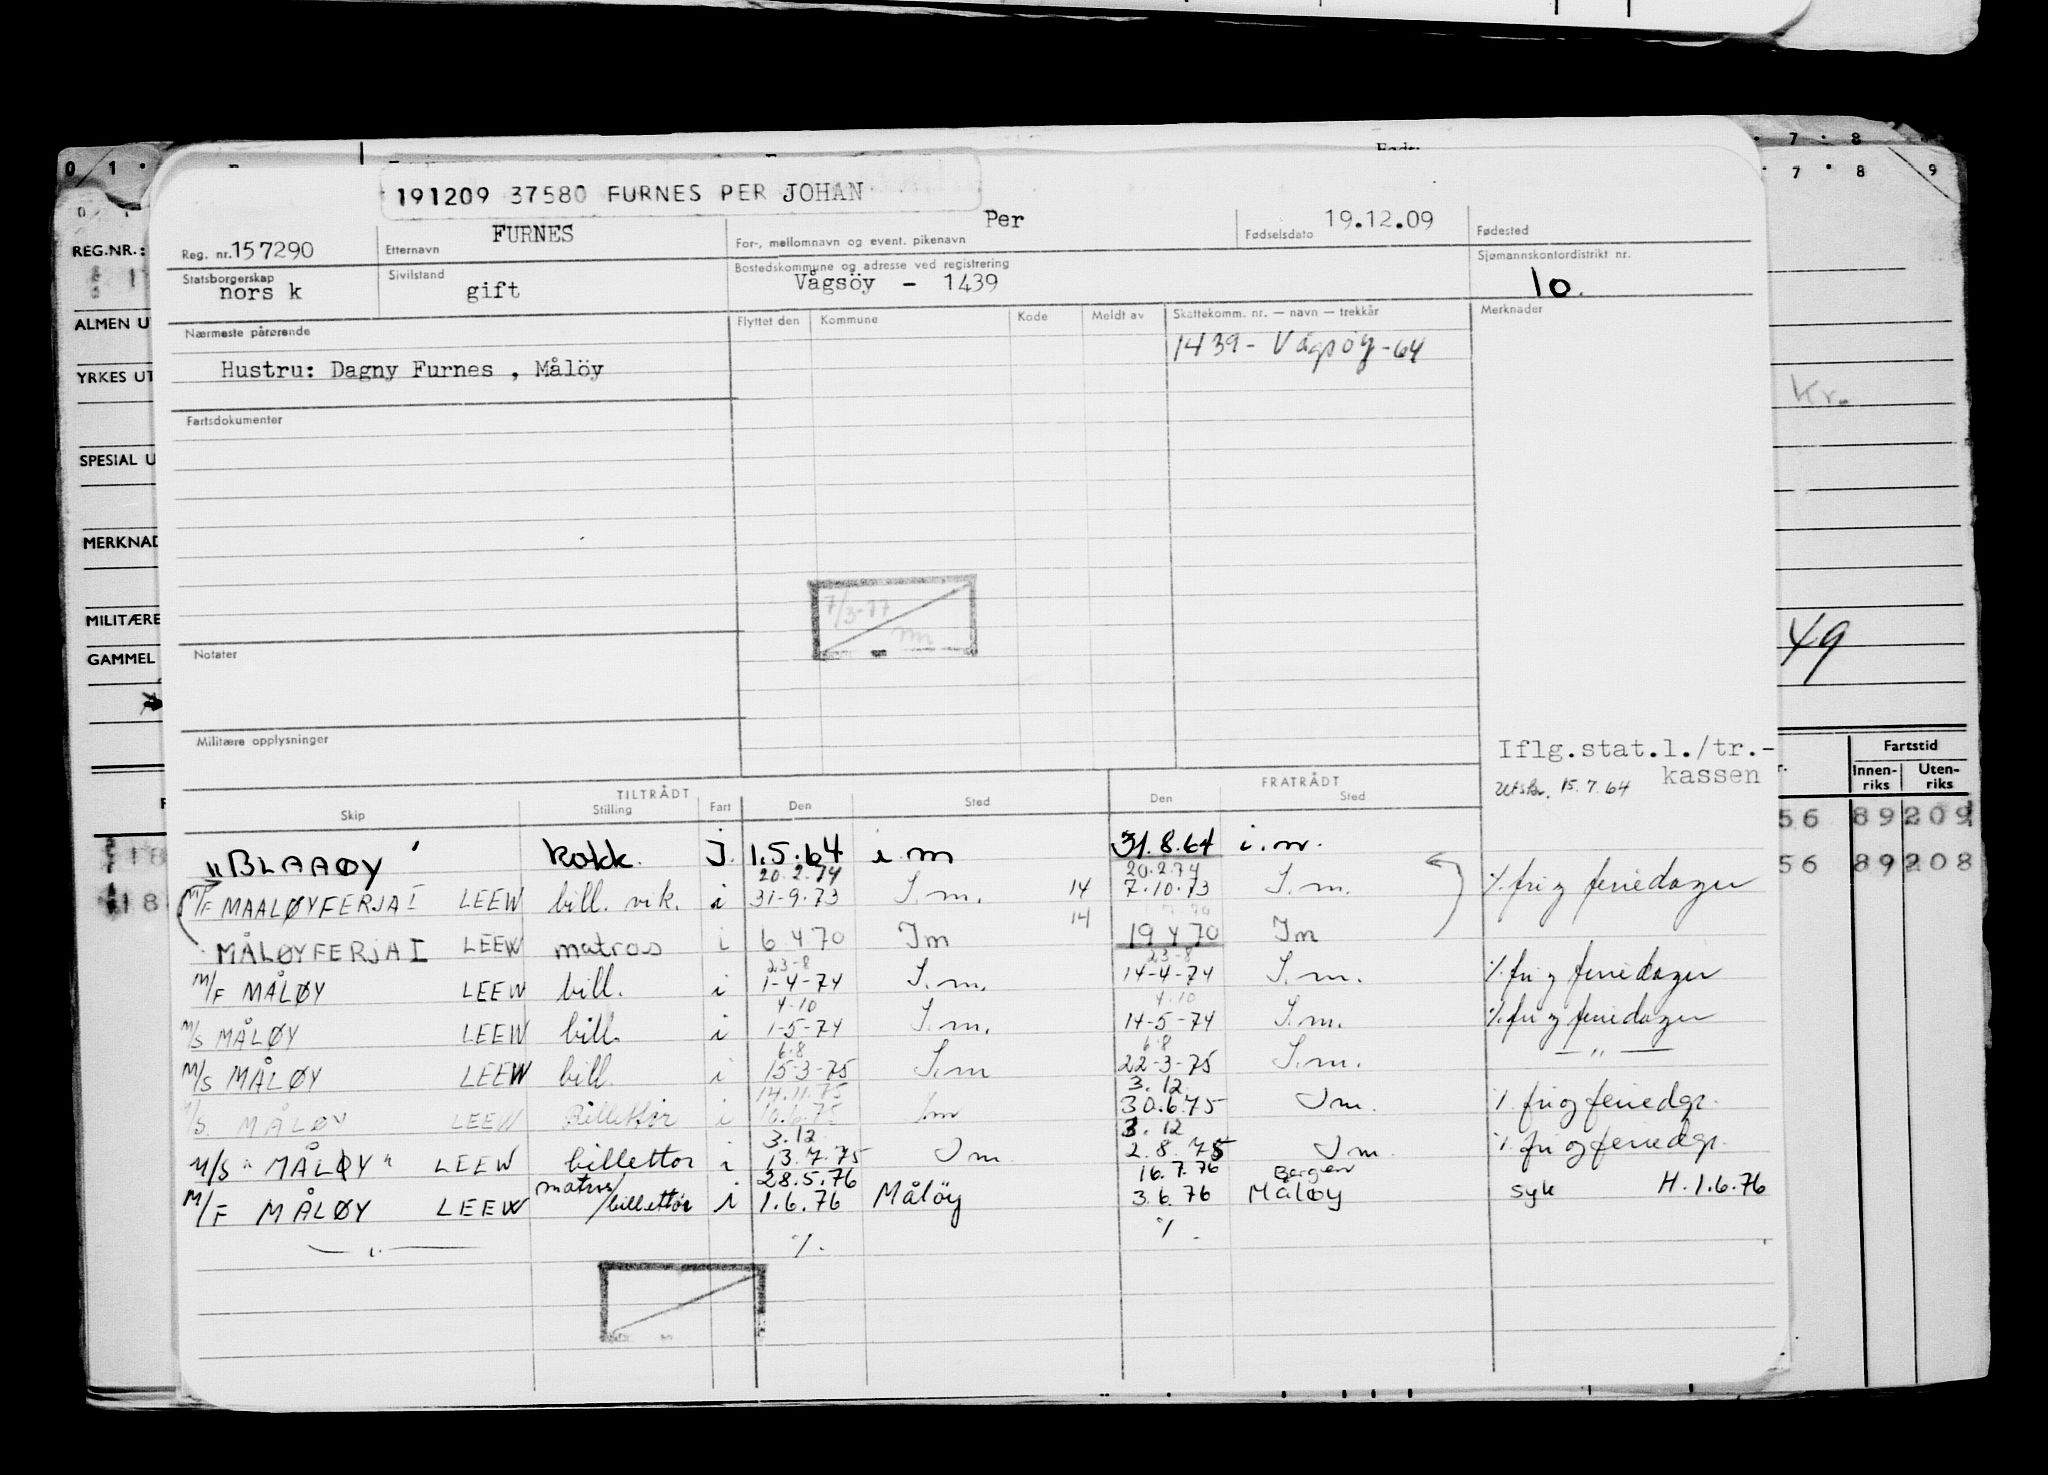 191209 37580 FURNES PER JOHAN
Reg. nr. 157290 Etternavn FURNES For-, mellomnavn og event. pikenavn Per Fødselsdato 19.12.09 Fødested
Statsborgerskap norsk Sivilstand gift Bostedskommune og adresse ved registrering Vågsöy - 1439 Sjømannskontordistrikt nr. 10.
Nærmeste pårørende Flyttet den Kommune Kode Meldt av Skattekomm. nr. — navn — trekkår Merknader
1439 - Vågsöy - 64
Hustru: Dagny Furnes , Målöy
Fartsdokumenter
7/3-77
Notater
Militære opplysninger
Iflg.stat.l./tr.-
kassen
Utskr. 15.7.64
TILTRÅDT FRATRÅDT
Skip Stilling Fart Den Sted Den Sted
"BLAAØY" kokk. I. 1.5.64 i m 31.8.64 i.m.
20.2.74 20.2.74
M/F MAALØYFERJA I LEEW bill. vik. i 31-9-73 I.m. 14 7.10.73 I.m. % fri og feriedager
MÅLØYFERJA I LEEW matros i 6 4 70 Im 14 19 4 70 Im
23-8 23-8
M/F MÅLØY LEEW bill. i 1-4-74 I.m. 14-4-74 I.m. % fri og feriedager
4-10 4.10
M/S MÅLØY LEEW bill. i 1-5-74 I.m. 14-5-74 I.m. % fri og feriedager
6.8 6.8
M/S MÅLØY LEEW bill. i 15-3-75 I.m 22-3-75 I.m. — " —
14.11.75 3.12
M/S. MÅLØY LEEW Billettør i 10.6.75 Im 30.6.75 Im. % fri og feriedgr.
3.12 3.12
M/S "MÅLØY" LEEW billettør i 13.7.75 Im. 2.8.75 Im. % fri og feriedgr.
matros/ 28.5.76 16.7.76 Bergen
M/F MÅLØY LEEW billettør i 1.6.76 Målöy 3.6.76 Måløy syk H. 1.6.76
— " — %. %.
REG.NR.:
ALMEN U
YRKES UT
SPESIAL U
MERKNAD
MILITÆRE
GAMMEL
Kr.
49
Fartstid
Innen-riks Uten-riks
56 89 209
56 89 208